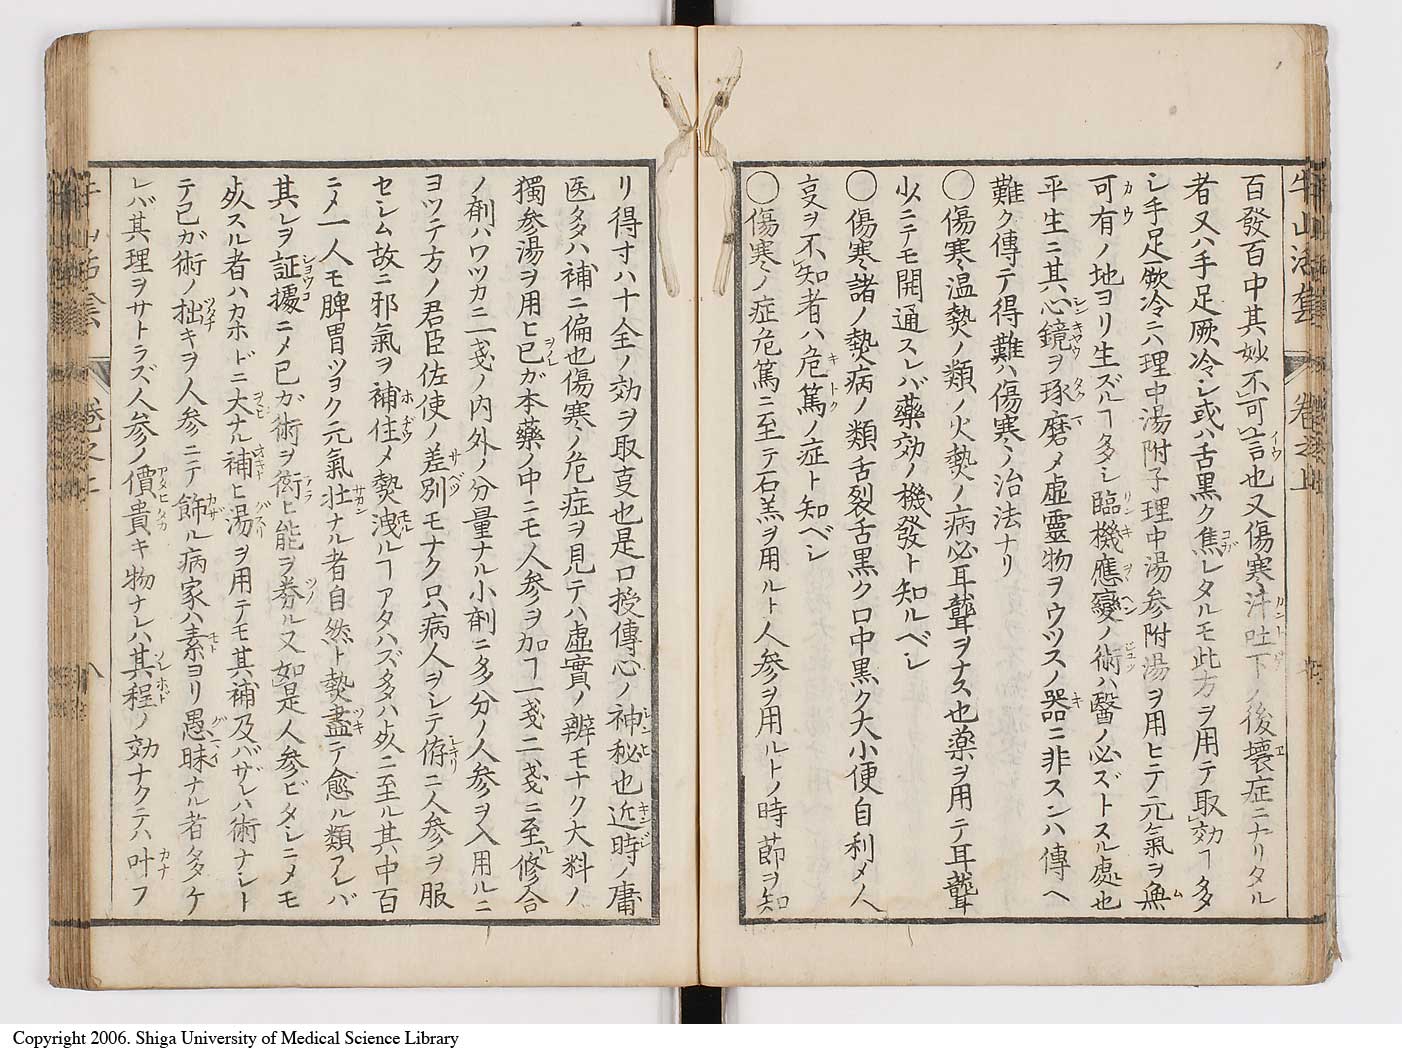 百發百中其妙不可言也又傷寒汗吐下ノ後壞症ニナリタル
者又ハ手足厥冷シ或ハ舌黒ク焦レタルモ此方ヲ用テ取効ヿ多
シ手足厥冷ニハ理中湯附子理中湯参附湯ヲ用ヒテ元氣ヲ無
可有ノ地ヨリ生ズルヿ多シ臨機應變ノ術ハ醫ノ必ズトスル處也
平生ニ其心鏡ヲ琢磨メ虚靈物ヲウツスノ器ニ非スンハ傳ヘ
難ク傳テ得難ハ傷寒ノ治法ナリ
〇傷寒温熱ノ類ノ火熱ノ病必耳聾ヲナス也薬ヲ用テ耳聾
少ニテモ開通スレバ藥効ノ機發ト知ルベシ
〇傷寒諸ノ熱病ノ類舌裂舌黒ク口中黒ク大小便自利メ人
叓ヲ不知者ハ危篤ノ症ト知ベシ
〇傷寒ノ症危篤ニ至テ石羔ヲ用ルト人参ヲ用ルトノ時節ヲ知
リ得寸ハ十全ノ効ヲ取叓也是口授傳心ノ神秘也近時ノ庸
医多ハ補ニ偏也傷寒ノ危症ヲ見テハ虚實ノ辨モナク大料ノ
獨参湯ヲ用ヒ已ガ本藥ノ中ニモ人参ヲ加ヿ一戔二戔ニ至修合
ノ剤ハワツカニ一戔ノ内外ノ分量ナル小剤ニ多分ノ人参ヲ入用ルニ
ヨツテ方ノ君臣佐使ノ差別モナク只病人ヲシテ俯ニ人参ヲ服
セシム故ニ邪氣ヲ補住メ熱洩ルヿアタハズ多ハ死ニ至ル其中百
ニメ一人モ脾胃ツヨク元氣壮ナル者自然ト熱盡テ愈ル類アレバ
其レヲ証據ニメ已カ術ヲ衒ヒ能ヲ券ル又如是人参ビタシニメモ
死スル者ハカホドニ大ナル補ヒ湯ヲ用テモ其補及バザレハ術ナシト
テ已ガ術ノ拙キヲ人参ニテ飾ル病家ハ素ヨリ愚昧ナル者多ケ
レバ其理ヲサトラズ人参ノ價貴キ物ナレハ其程ノ効ナクテハ叶フ
牛山活套
卷之上
八
Copyright 2006. Shiga University of Medical Science Library